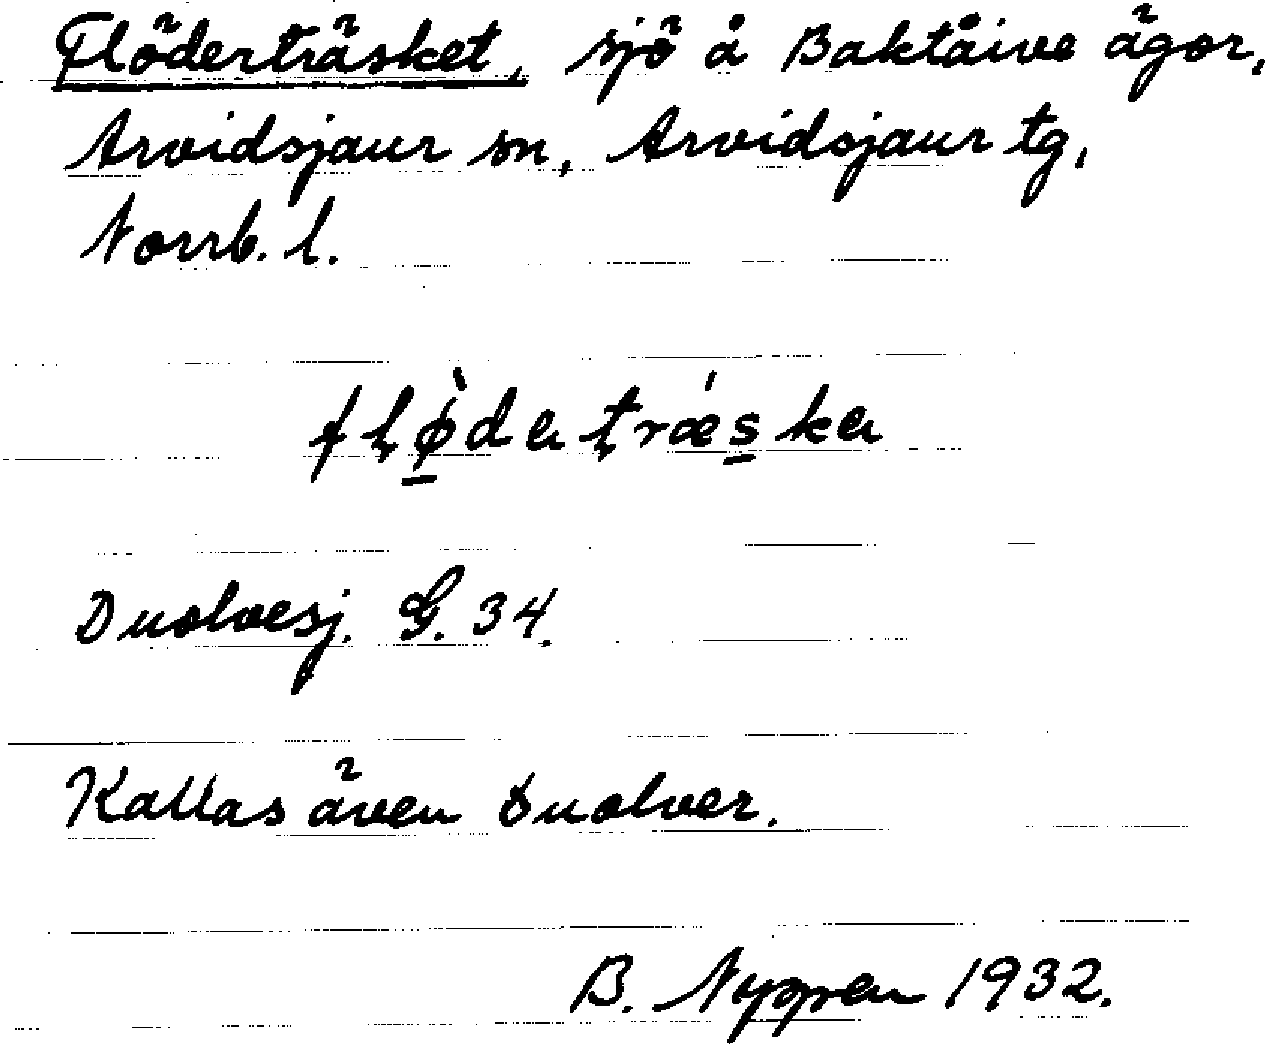 Flöderträsket, sjö å Baktåive ägor,
Arvidsjaur sn, Arvidsjaur tg,
Norrb. l.
flø̀dertrǽsker
Duolvesj. G. 34.
Kallas även Duolver.
B. Nyppen 1932.